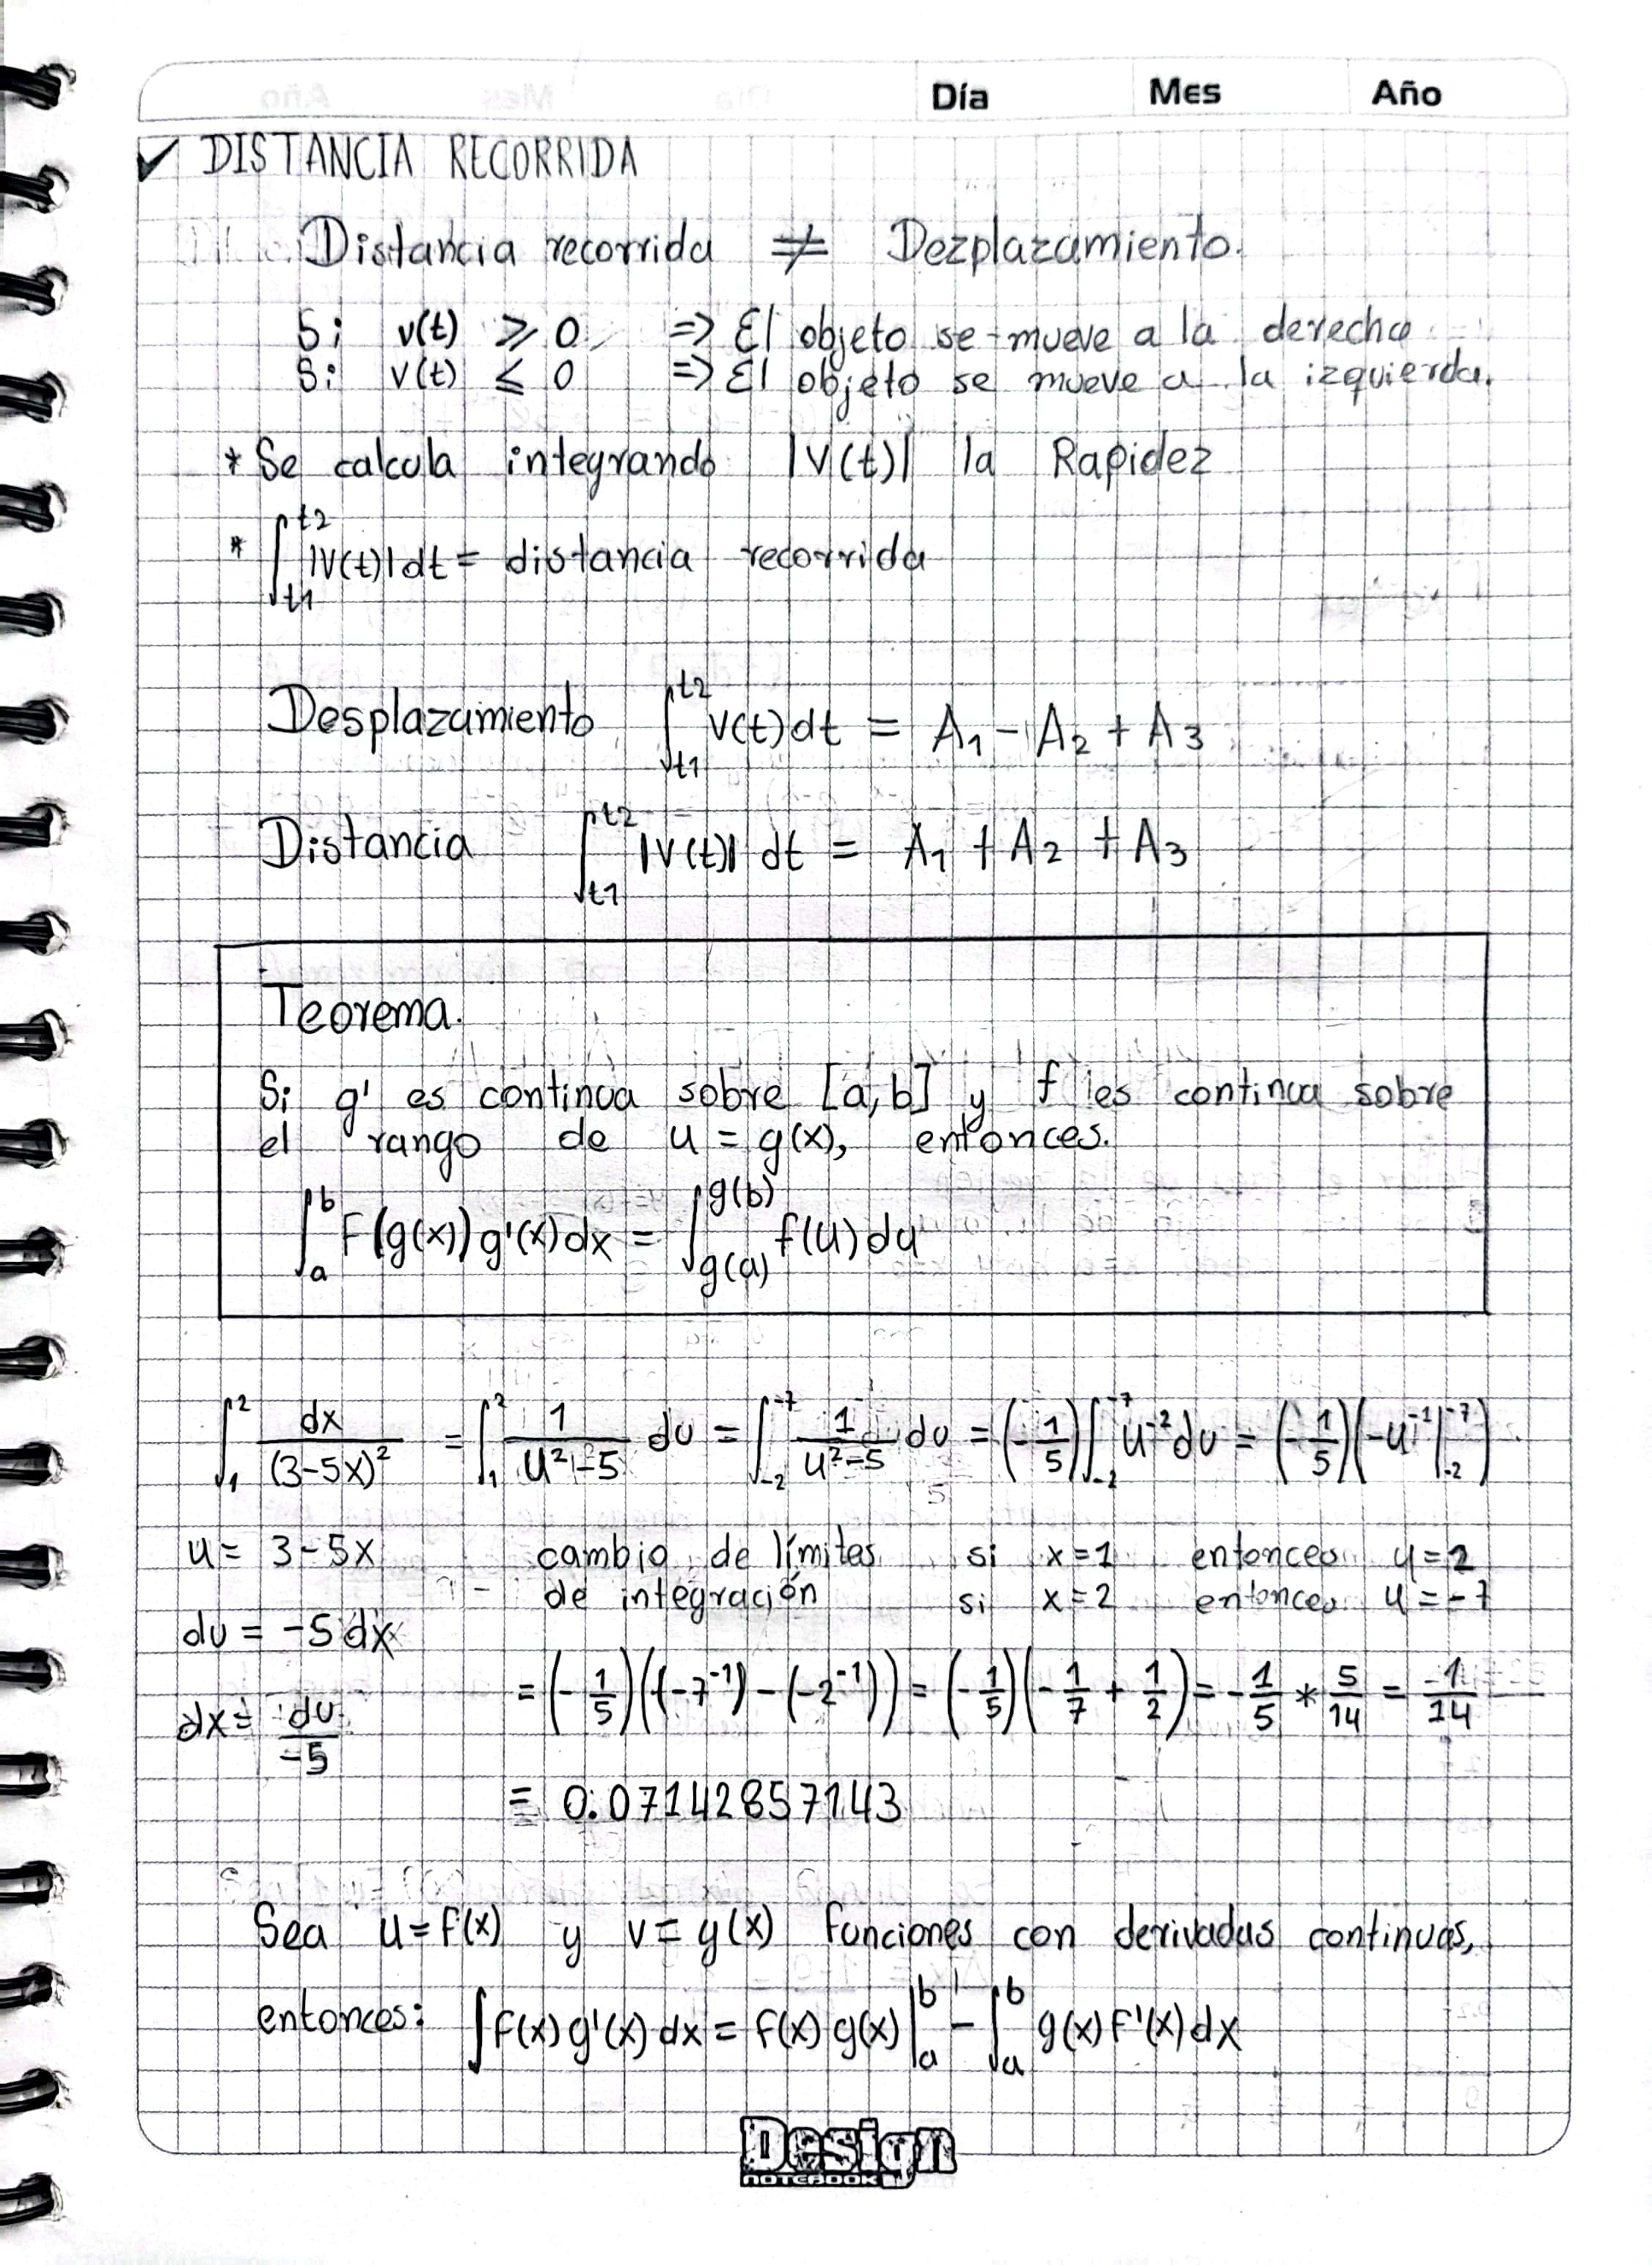 Día Mes Año
✓ DISTANCIA RECORRIDA
Distancia recorrida ≠ Dezplazamiento.
Si v(t) ⩾ 0 => El objeto se mueve a la derecha
Si v(t) ⩽ 0 => El objeto se mueve a la izquierda.
* Se calcula integrando |V(t)| la Rapidez
* ∫_{t1}^{t2} |V(t)| dt = distancia recorrida
Desplazamiento ∫_{t1}^{t2} v(t) dt = A₁ - A₂ + A₃
Distancia ∫_{t1}^{t2} |V(t)| dt = A₁ + A₂ + A₃
Teorema.
Si g' es continua sobre [a,b] y f es continua sobre
el rango de u = g(x), entonces.
∫_a^b F(g(x)) g'(x) dx = ∫_{g(a)}^{g(b)} f(u) du
∫_1^2 dx/(3-5x)² = ∫_1^2 1/(u²-5) du = ∫_{-2}^{-7} 1/(u²-5) du = (-1/5) ∫_{-2}^{-7} u⁻² du = (-1/5)(-u⁻¹|_{-2}^{-7})
u = 3-5x cambio de límites si x=1 entonces u=2
de integración si x=2 entonces u=-7
du = -5 dx
dx = du/-5 = (-1/5)((-7⁻¹) - (-2⁻¹)) = (-1/5)(-1/7 + 1/2) = -1/5 * 5/14 = -1/14
= 0.07142857143
Sea u=f(x) y v=g(x) funciones con derivadas continuas,
entonces: ∫ f(x) g'(x) dx = f(x) g(x) |_a^b - ∫_a^b g(x) f'(x) dx
Design
NOTEBOOK